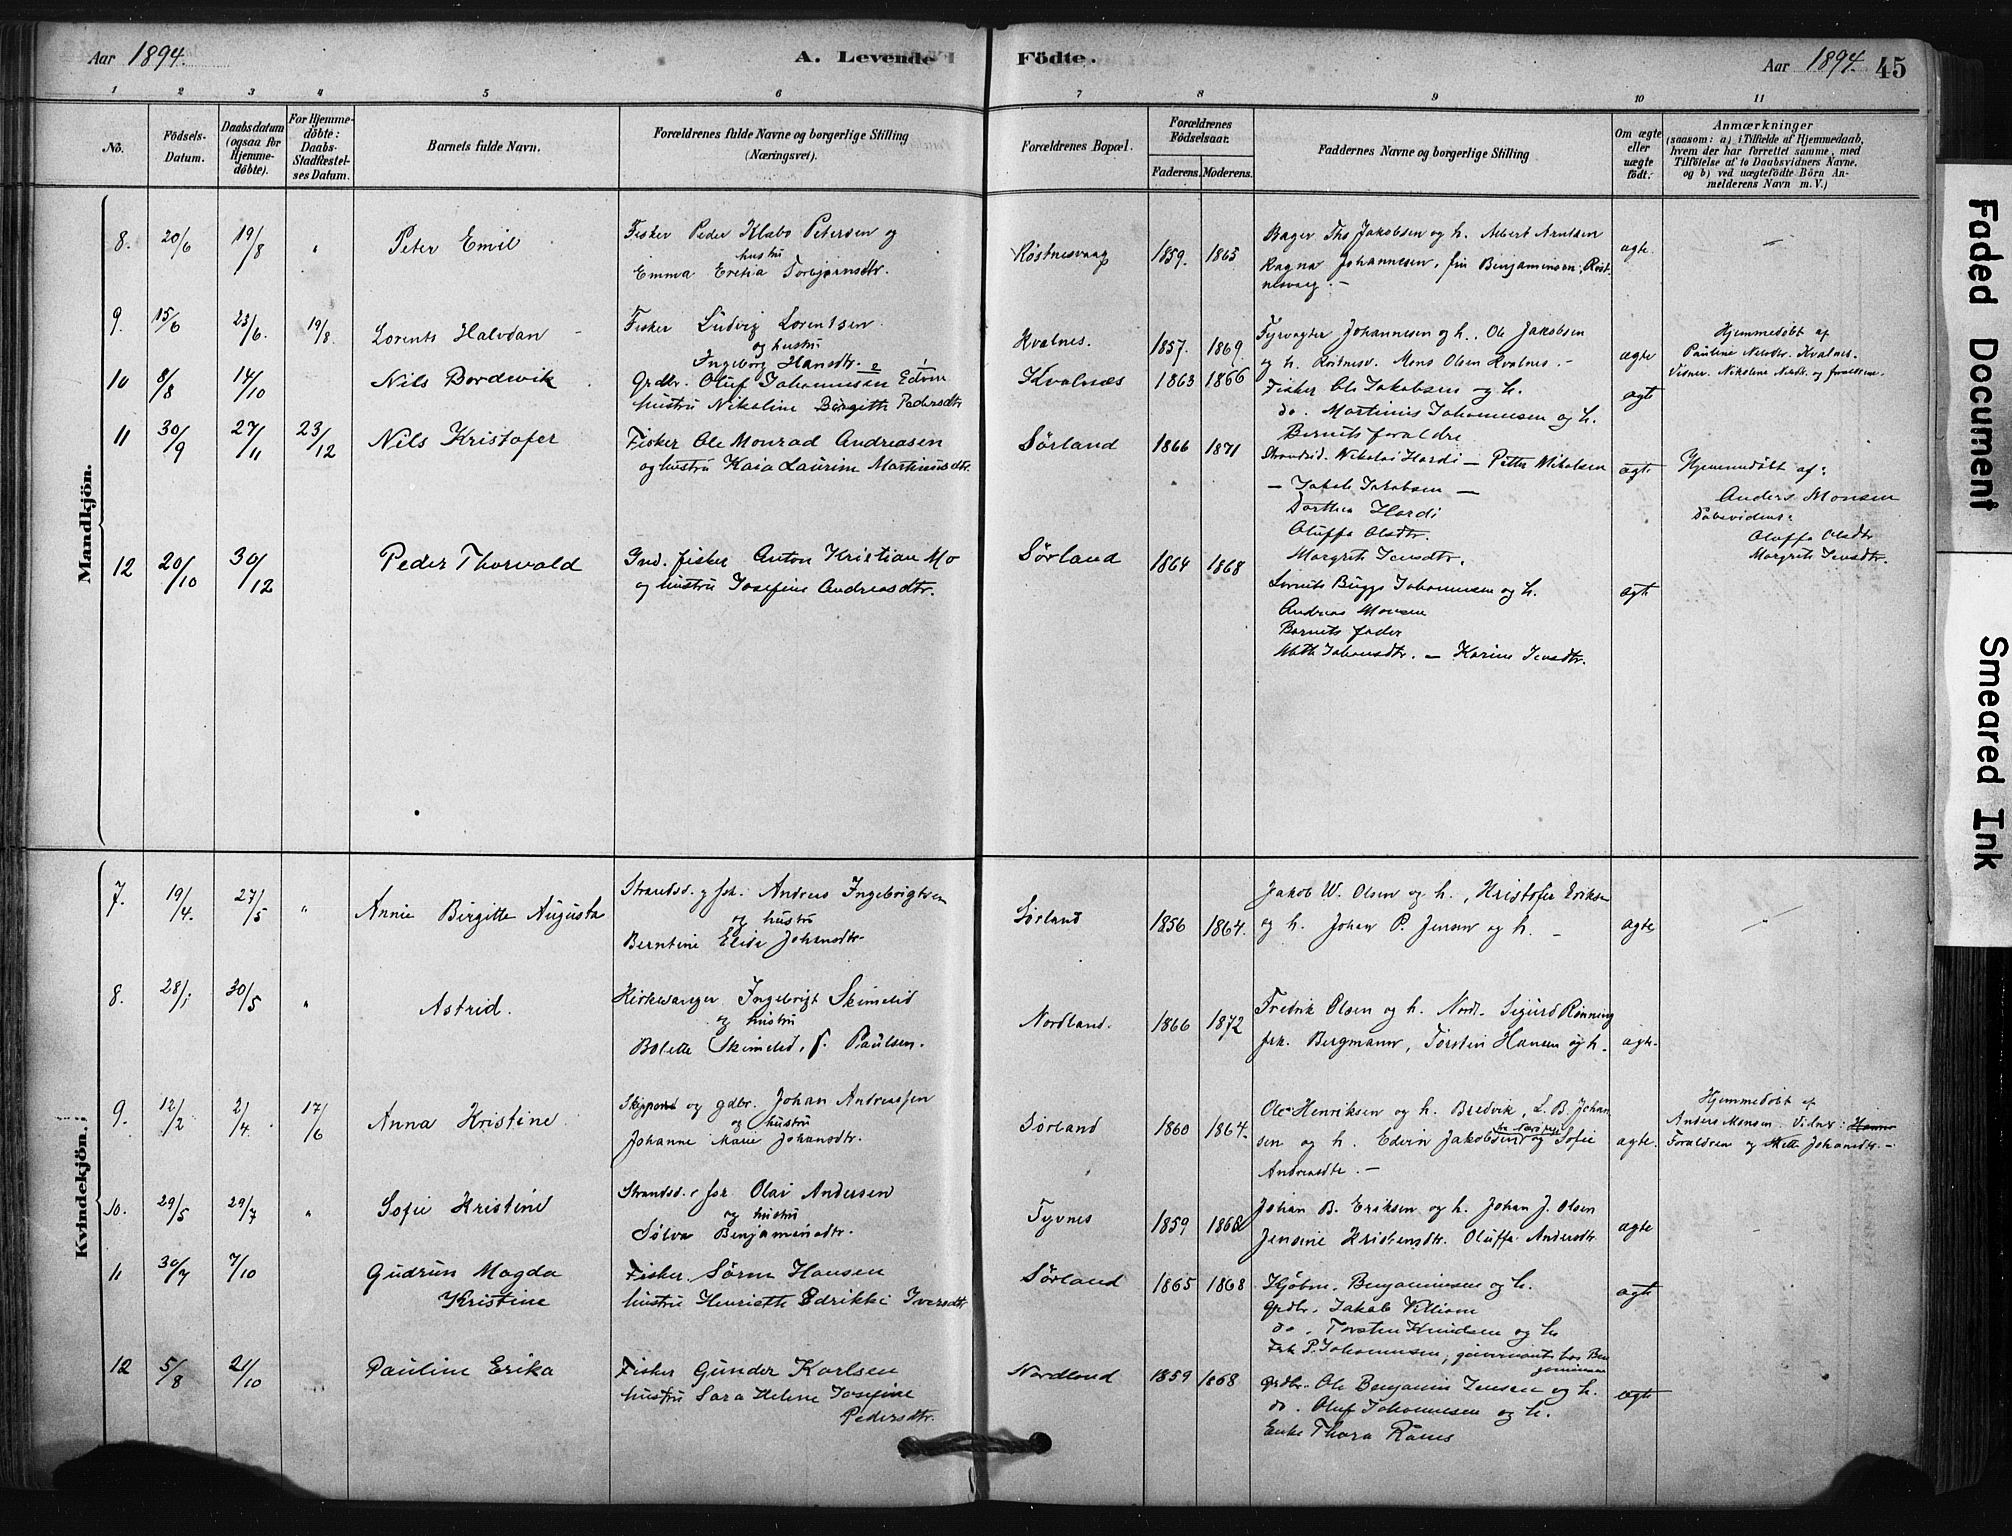 Aar 1894. A. Levende Födte. Aar 1894. 45
1 2 3 4 5 6 7 8 9 10 11
No.
Födsels-Datum.
Daabsdatum (ogsaa for Hjemme-döbte).
For Hjemme-döbte: Daabs-Stadfæstel-ses Datum.
Barnets fulde Navn.
Forældrenes fulde Navne og borgerlige Stilling
(Næringsvei).
Forældrenes Bopæl.
Forældrenes Födselsaar.
Faderens. Moderens.
Faddernes Navne og borgerlige Stilling
Om ægte eller uægte födt.
Anmærkninger
(saasom: a) i Tilfælde af Hjemmedaab,
hvem der har forrettet samme, med
Tilföielse af to Daabsvidners Navne,
og b) ved uægtefödte Börn An-
melderens Navn m. V.)
Mandkjön.
8. 20/6 19/8 " Peter Emil
Fisker Peder Klabo Petersen og
hustru
Emma Eretia Torbjørnsdtr.
Røstnesvaag 1859. 1865
Bager Ths Jakobsen og h. Albert Arntsen
Ragna Johannesen, frü Benjaminsen, Røst-
nesvaag. —
ægte. —
9. 15/6 23/6. 19/8. Lorents Halvdan
Fisker Ludvig Lorentsen
og hustru
Ingeborg Hansdtr.
Kvalnes. 1857. 1869.
Fyrvogter Johannesen og h. Ole Jakobsen
og h. Mons Olsen Kvalnes. —
ægte
Hjemmedøbt af
Pauline Kvalnes.
10 8/8 14/10 Nils Bordevik
Grdbr. Oluf Johannesen
hustru Nikoline Birgitte Pedersdtr
Kvalnæs 1863 1866
Fisker Ole Jakobsen og h.
do. Martinus Johannesen og h.
Barnets forældre
ægt
11 30/9 27/11 23/12 Nils Kristofer
Fisker Ole Monrad Andreasen
og hustru Kaia Laurine Martinusdtr.
Sørland 1866 1871
Strandsid. Nikolai Hardi — Petter Nikolsen
— Jakob Jakobsen —
Dorthea Hardi
Oluffa Olsdtr.
Margrete Jensdtr.
ægte
Hjemmedøbt af:
Anders Monsen
Daabsvidner:
Oluffa Olsdtr
Margrete Jensdtr.
12 20/10 30/12 Peder Thorvald
Grd. fisker Anton Kristian Mo
og hustru Josefine Andreasdtr.
Sørland 1864 1868
Lornts Bugge Johannesen og h.
Andreas Monsen
Barnets fader
Mette Johansdtr. — Karine Jensdtr.
ægt
Kvindekjön.
7. 19/4. 27/5 " Annie Birgitte Augusta
Strandsd. og fsk. Andreas Ingebrigtsen
og hustru
Berntine Elise Johansdtr.
Sørland 1856 1864.
Jakob W. Olsen og h., Kristofer Eriksen
og h. Johan P. Jensen og h. —
ægte "
8. 28/1 30/5 " Astrid.
Kirkesanger Ingebrigt Skimelid
og hustru
Bolette Skimelid, f. Paulsen.
Nordland. 1866 1872
Fredrik Olsen og h. Nordl. Sigurd Rønning
frk. Bergmann, Torsten Hansen og h.
ægte.
9. 12/2 2/4. 17/6 Anna Kristine
Skipper og gdbr. Johan Andreassen
og hustru
Johanne Marie Johansdtr.
Sørland 1860 1864.
Ole Henriksen og h. Bredvik, L. B. Johan
sen og h. Edvin Jakobsen og Sofie
Andreasdtr. —
ægte.
Hjemmedøbt af
Anders Monsen. Vidner:
Forældren og Mette Johansdtr. —
10. 29/5 29/7 " Sofie Kristine
Strandsd. fsk. Olai Andersen
og hustru
Sølva Benjaminsdtr.
Tyvnes 1859 1868
Johan B. Eriksen og h. Johan J. Olsen
Jensine Kristensdtr. Oluffa Andersdtr.
ægte
11 30/7 7/10 Gudrun Magda
Kristine
Fisker Sören Hansen
hustru Henriette Edrikke Iversdtr
Sørland 1865 1868
Kjøbm. Benjaminsen og h.
grdbr. Jakob Villiam
do. Torsten Knudsen og h.
Frk P. Johannesen, guvernante hos Ben
jaminsen
ægt
12 5/8 21/10 Pauline Erika
Fisker Gunder Karlsen
hustru Sara Helene Josefine
Pedersdtr.
Nordland 1859 1868
grdbr. Ole Benjamin Jensen og h.
do. Oluf Johannesen og h.
Enke Thora
ægt
Faded Document
Smeared Ink